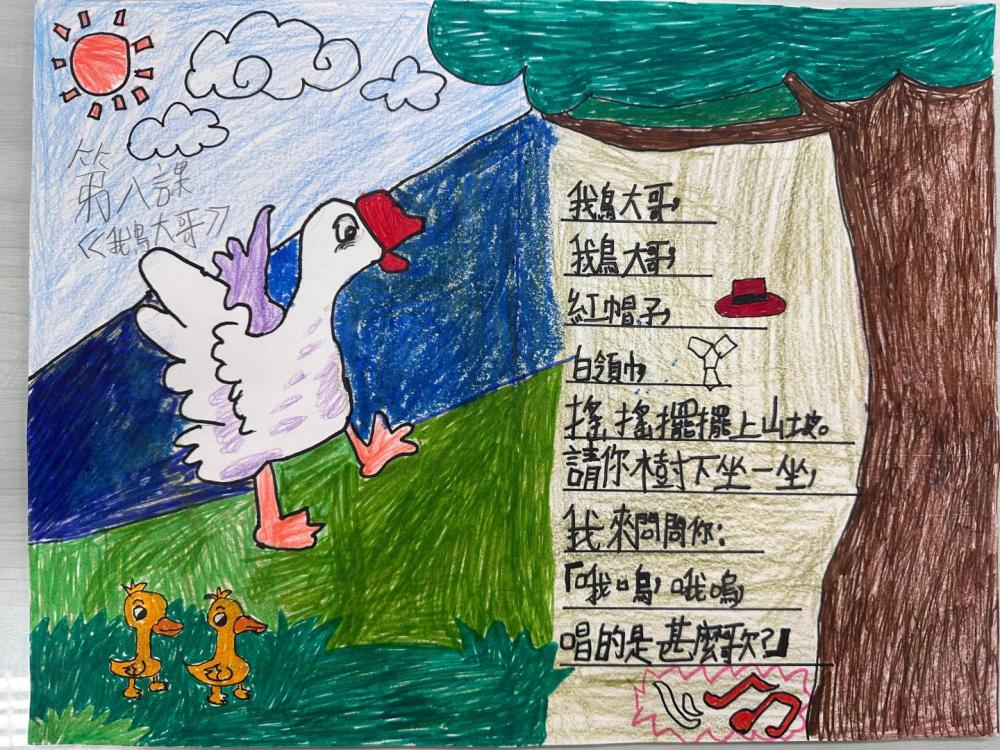 第八課
《鵝大哥》
鵝大哥，
鵝大哥，
紅帽子，
白領巾，
搖搖擺擺上山坡。
請你樹下坐一坐，
我來問問你：
「哦嗚，哦嗚，
唱的是甚麼歌？」